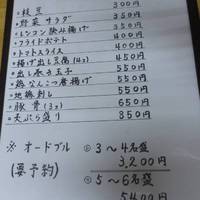 ○ 枝豆 300円
○ 野菜サラダ 350円
○ レンコン挟み揚げ 350円
○ フライドポテト 400円
○ トマトスライス 400円
○ 揚げ出し豆腐(4ヶ) 450円
○ 出し巻き玉子 550円
○ 鶏なんこつ唐揚げ 550円
○ 地鶏刺し 650円
○ 豚骨(3ヶ) 550円
○ 天ぷら盛り 850円
※ オードブル ① 3〜4名盛
(要予約) 3,200円
② 5〜6名盛
5400円